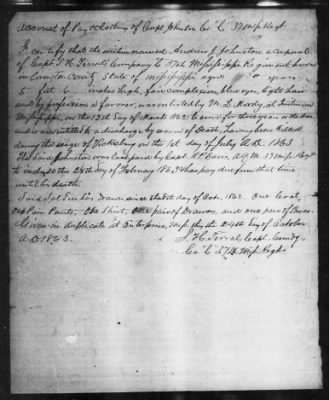 Account of Pay & Clothing of Corpl Johnston Co "C" 37 Miss Regt
I certify that the within named Andrew J. Johnston a corporal
of Capt. S. H. Terral's Company C 37th Mississippi Regiment born
in Covington County State of Mississippi aged years
5 feet 6 inches high, fair complexion, blue eyes, light hair
and by profession a farmer, was enlisted by M. D. Moody, at
Mississippi, on the 13th day of March 1862 to serve for three years or the war
and is now entitled to a discharge by reason of Death, having been killed
during the siege of Vicksburg on the 1st day of July A.D. 1863
The said Johnston was last paid by Capt. Evans, A.Q.M. 37 Miss Regt
to include the 28th day of February 1863 & has pay due from that time
until his death.
Said Johnston has drawn since 1st day of Oct. 1862. One Coat,
one Pair Pants, one Shirt, one pair of Drawers, and one pair of Shoes.
Given in duplicate at Enterprise, Miss this the 24th day of October
A.D. 1863.
S. H. Terral, Capt. Comdg.
Co. "C" 37th Miss Regt